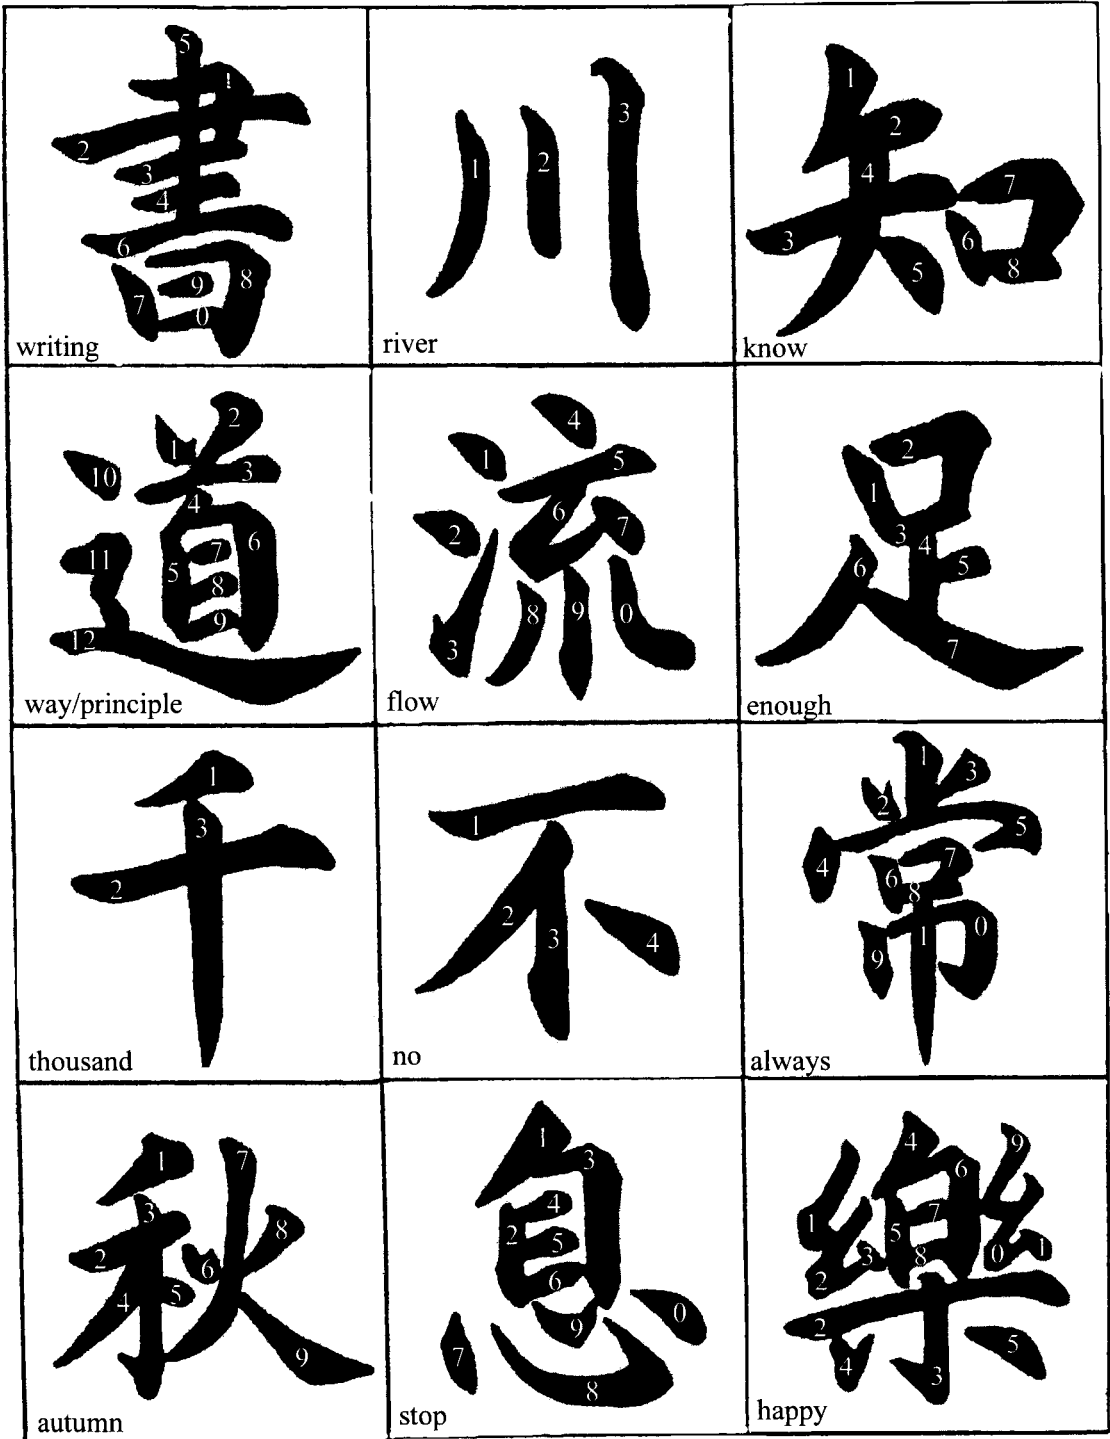 書 川 知
writing river know
道 流 足
way/principle flow enough
千 不 常
thousand no always
秋 息 樂
autumn stop happy